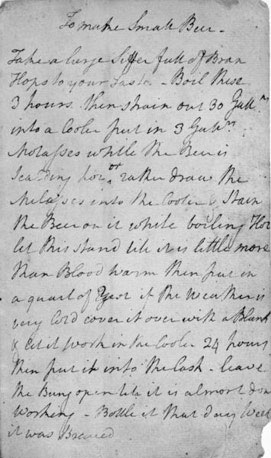 To make Small Beer -
Take a large Siffer full of Bran
Hops to your Taste - Boil these
3 hours. then strain out 30 Galln
into a Cooler put in 3 Galln
Molasses while the Beer is
Scalding hot or rather draw the
Molasses into the Cooler & Strain
the Beer on it while boiling Hot
let this stand till it is little more
than Blood warm then put in
a quart of Yeast if the Weather is
very Cold cover it over with a Blank
& let it work in the Cooler 24 hours
then put it into the Cask - leave
the Bung open till it is almost don
working - Bottle it that day Week
it was Brewed